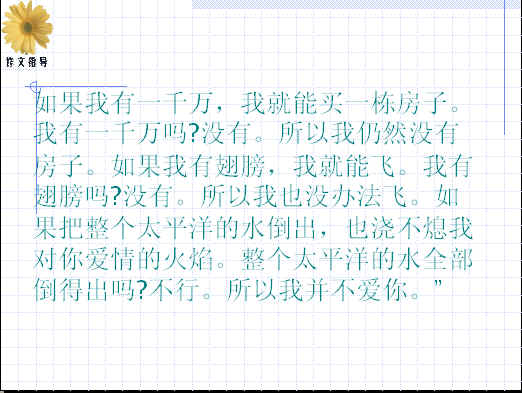 作文指导
如果我有一千万，我就能买一栋房子。
我有一千万吗?没有。所以我仍然没有
房子。如果我有翅膀，我就能飞。我有
翅膀吗?没有。所以我也没办法飞。如
果把整个太平洋的水倒出，也浇不熄我
对你爱情的火焰。整个太平洋的水全部
倒得出吗?不行。所以我并不爱你。”